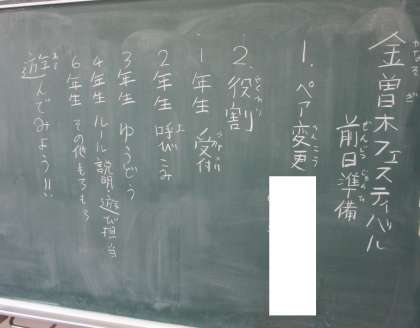 金曽木フェスティバル
前日準備
1. ペア変更
2. 役割
1年生 受付
2年生 呼びこみ
3年生 ゆうどう
4年生 ルール説明・遊び担当
6年生 その他もろもろ
遊んでみよう!!